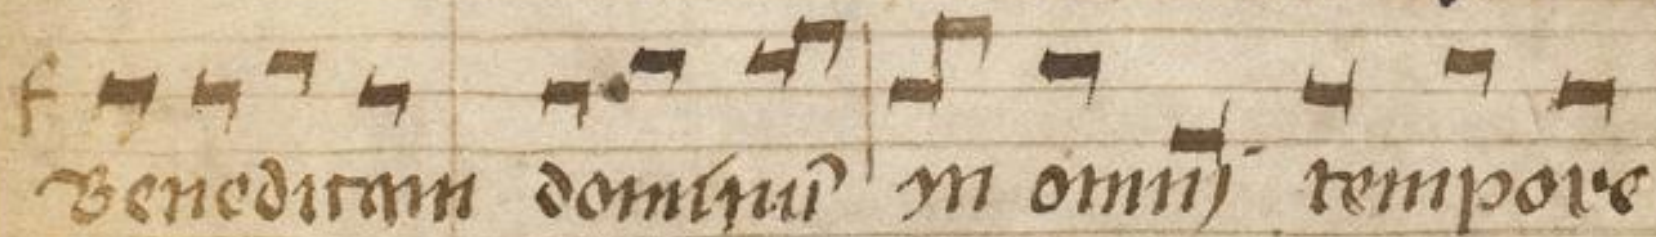 f
Benedicam dominū yn omnj tempore